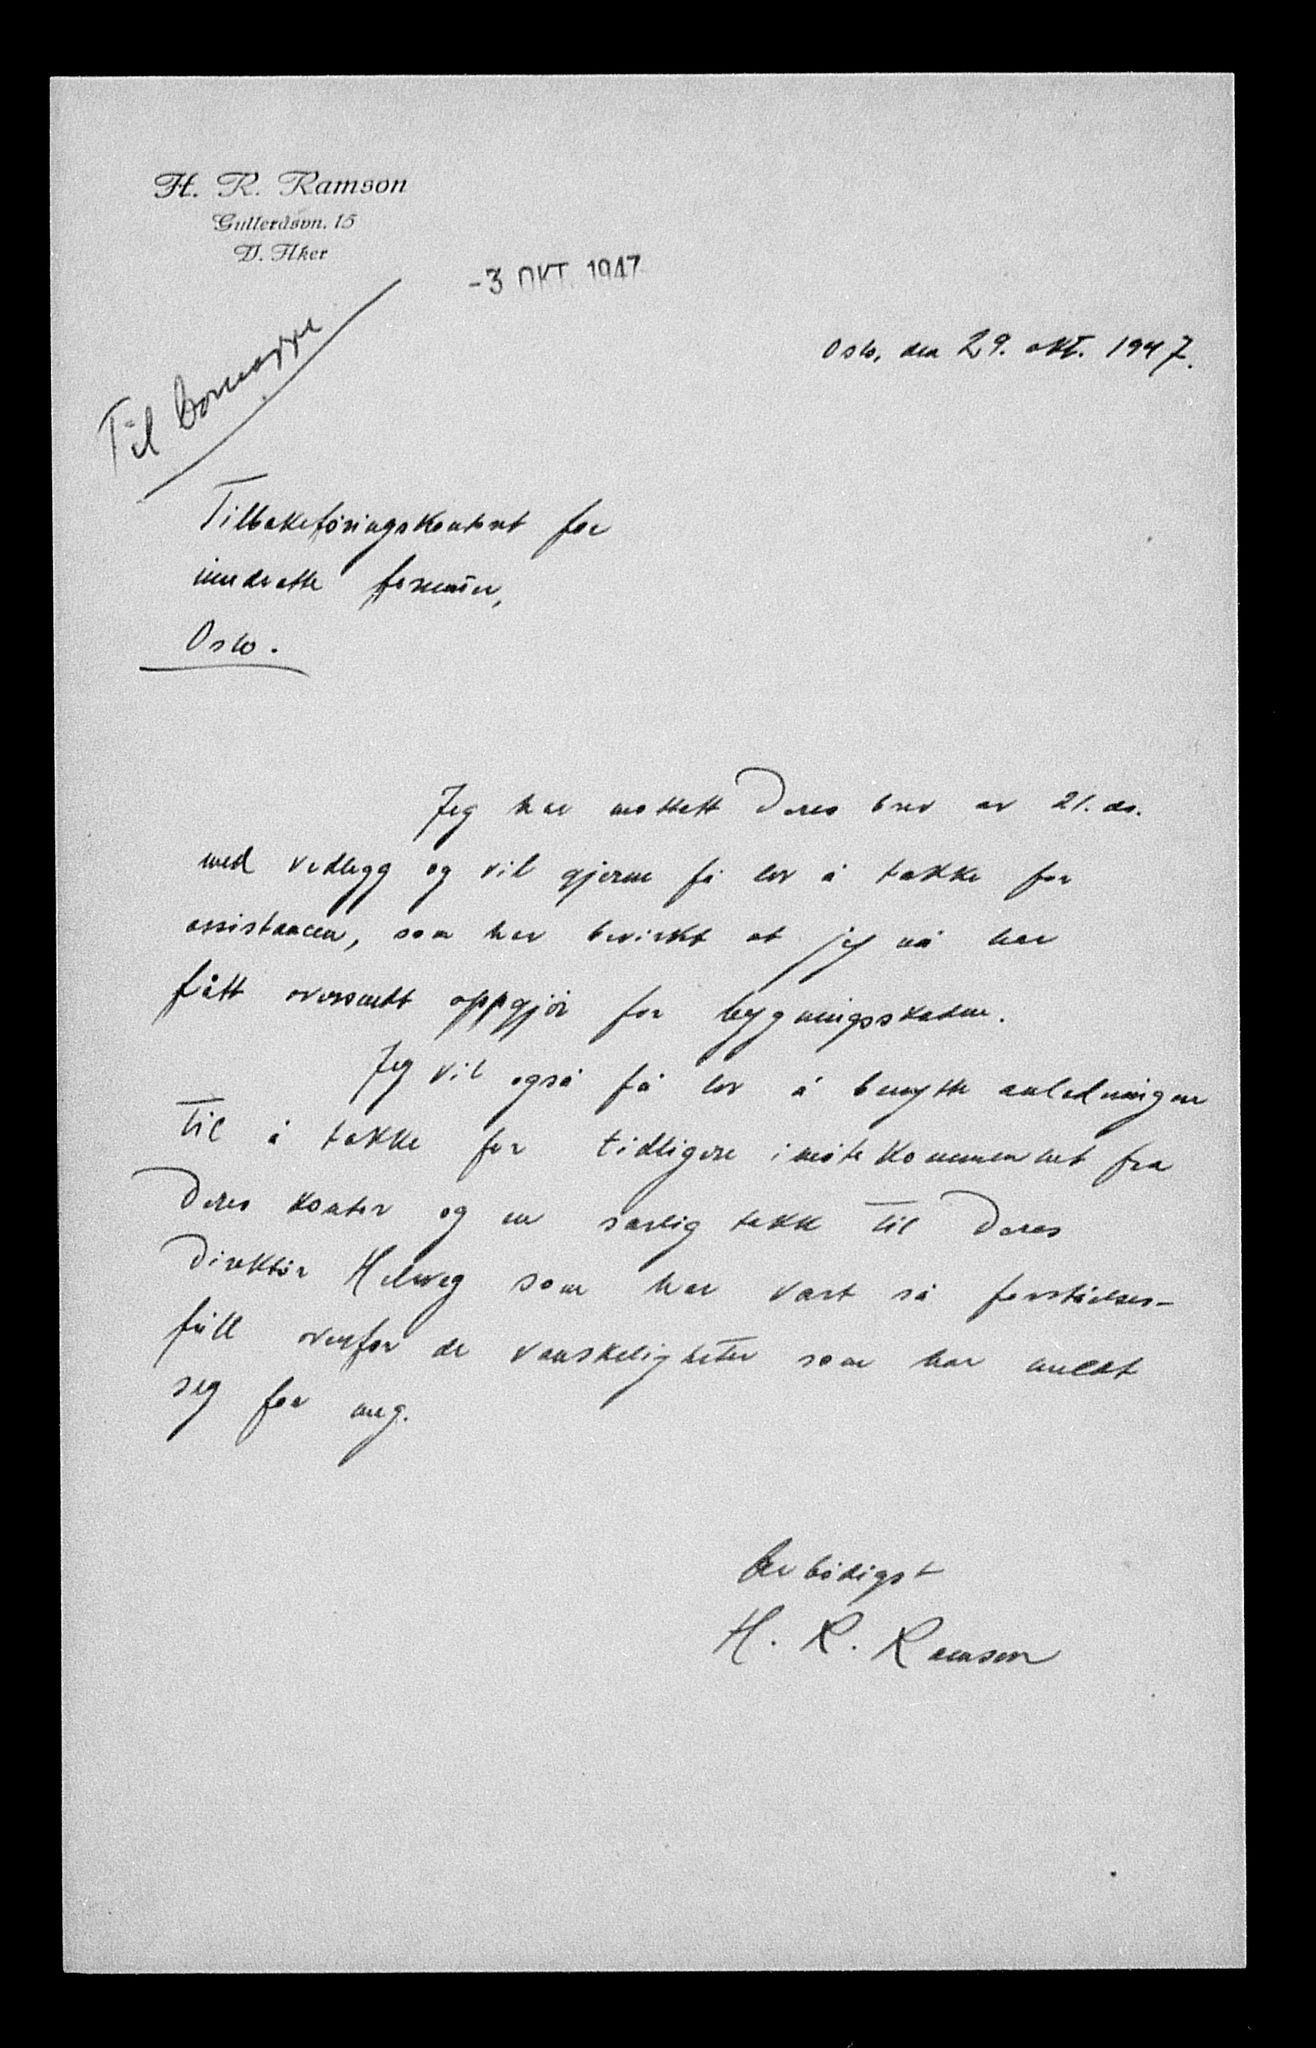 H. R. Ramson
Gulleråsvn. 15
V. Aker
-3 OKT. 1947
Oslo, den 29. okt. 1947.
Til
Tilbakeföringskontoret for
inndratte formuer,
Oslo.
Jeg har mottatt Deres brev av 21. ds.
med vedlegg og vil gjerne få lov å takke for
assistancen, som har bevirket at jeg nå har
fått oversendt oppgjör for bygningsskadene.
Jeg vil også få lov å benytte anledningen
til å takke for tidligere imötekommenhet fra
Deres kontor og en særlig takk til Deres
Direktör Helweg som har vært så forståelses-
full overfor de vanskeligheter som har meldt
seg for meg.
Ærbödigst
H. R. Ramson